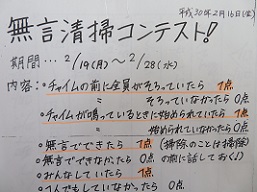 平成20年2月16日(金)
無言清掃コンテスト!
期間…2/19(月)~2/28(水)
内容:・チャイムの前に全員がそろっていたら 1点
〃 そろっていなかたら 0点
・チャイムが鳴っているときに始められていたら 1点
〃 始められていなかったら 0点
・無言でできたら 1点 (掃除のことは掃除
・無言でできなかったら 0点 の前に話しておく♪)
・みんなしていたら 1点
・1人でもしていなかったら 0点